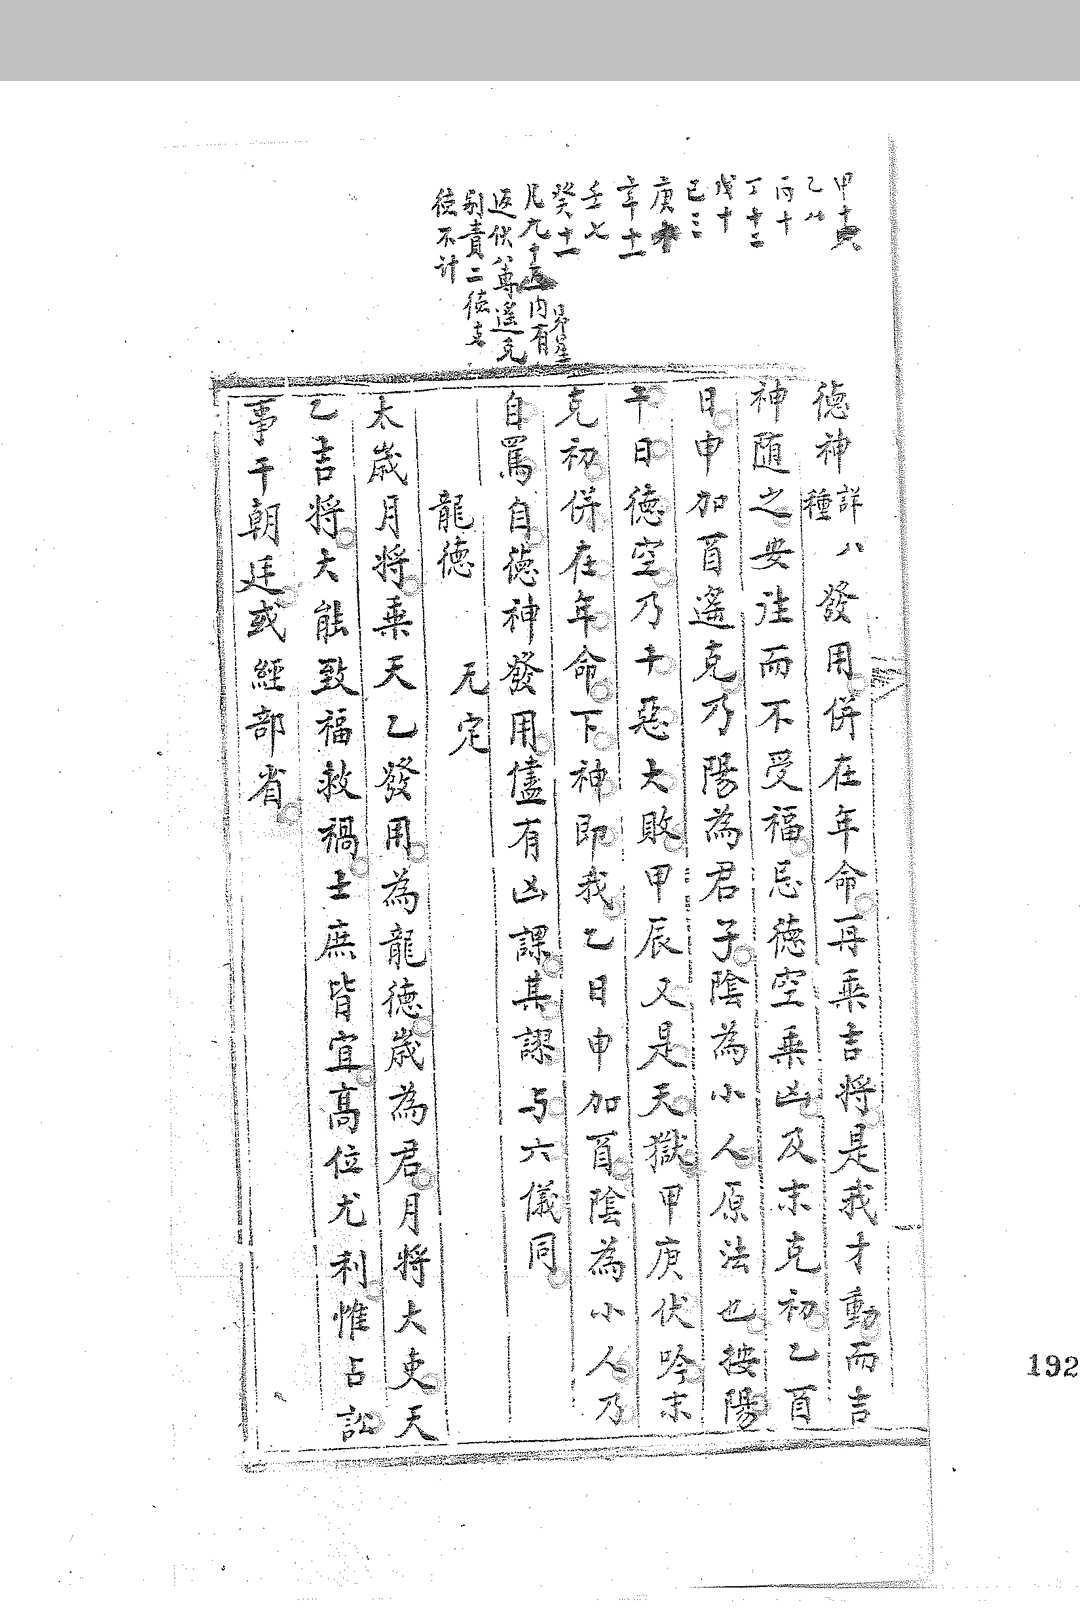 甲十
乙八
丙十
丁十二
戊十
己三
庚
辛十一
壬七
癸十一
昴星
凡九十五内有
返伏八專遙克
别責二德
德不计
德神詳八種發用併在年命再乘吉将是我才動而吉
神随之安往而不受福忌德空乘凶及末克初乙酉
日申加酉遙克乃陽為君子陰為小人原法也按陽
干日德空乃十惡大敗甲辰又是天獄甲庚伏吟末
克初併在年命下神即我乙日申加酉陰為小人乃
自罵自德神發用儘有凶課其謬与六儀同
龍德 无定
太歲月将乘天乙發用為龍德歲為君月将大吏天
乙吉将大能致福救禍士庶皆宜高位尤利惟占訟
事干朝廷或經部省
192